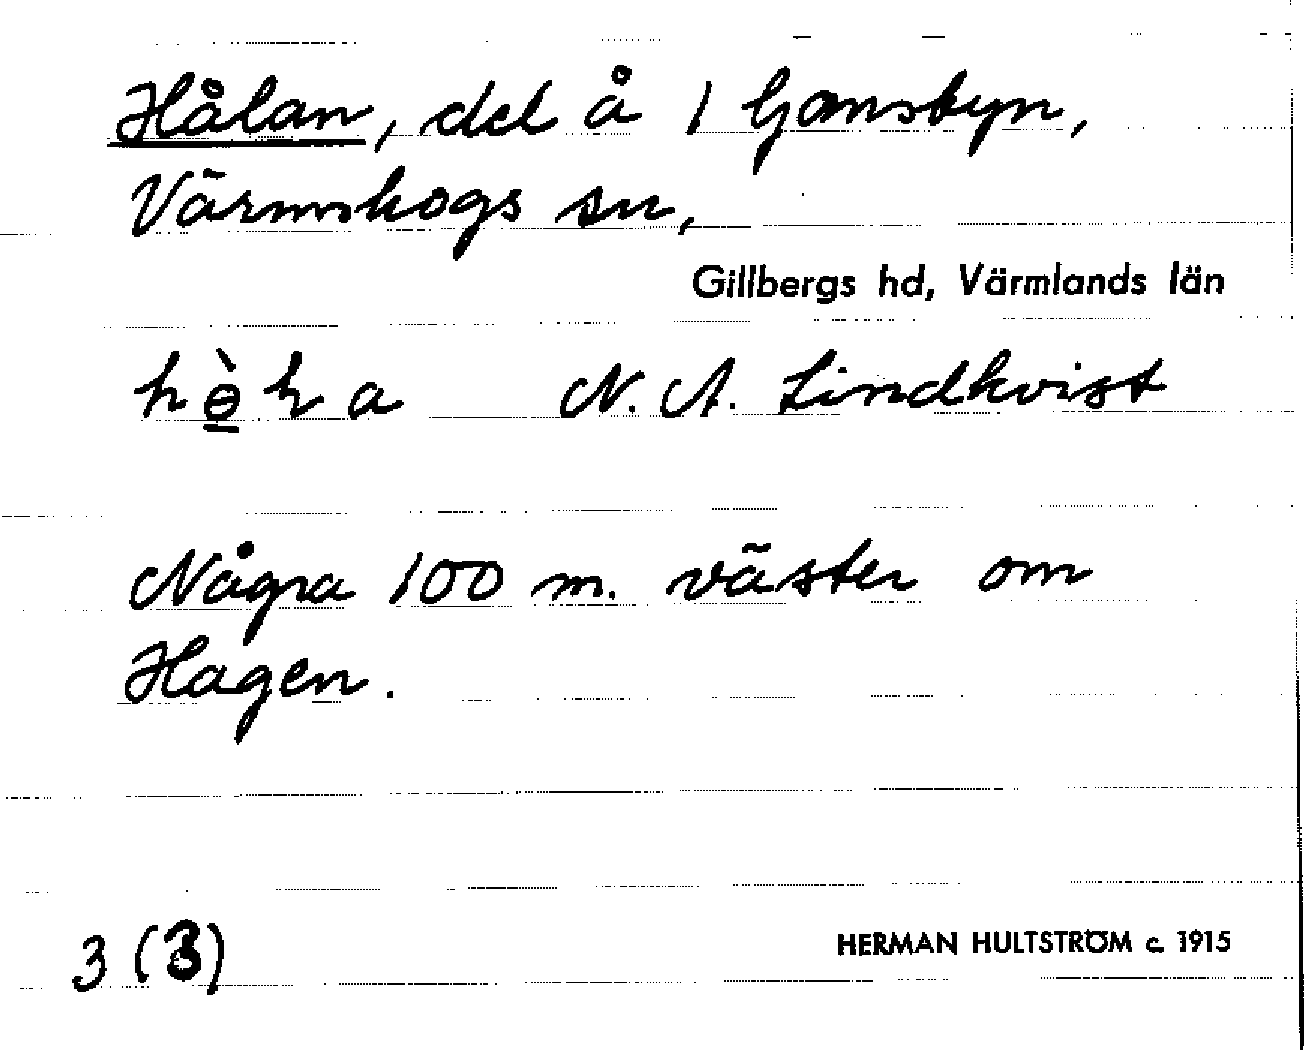 Hålan, del å 1 Gamsbyn,
Värmskogs sn,
Gillbergs hd, Värmlands län
N. A. Lindkvist
Några 100 m. väster om
Hagen.
3 (3)
HERMAN HULTSTRÖM c. 1915